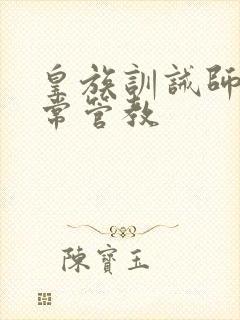 皇族訓誡師
常管教
陳寶玉